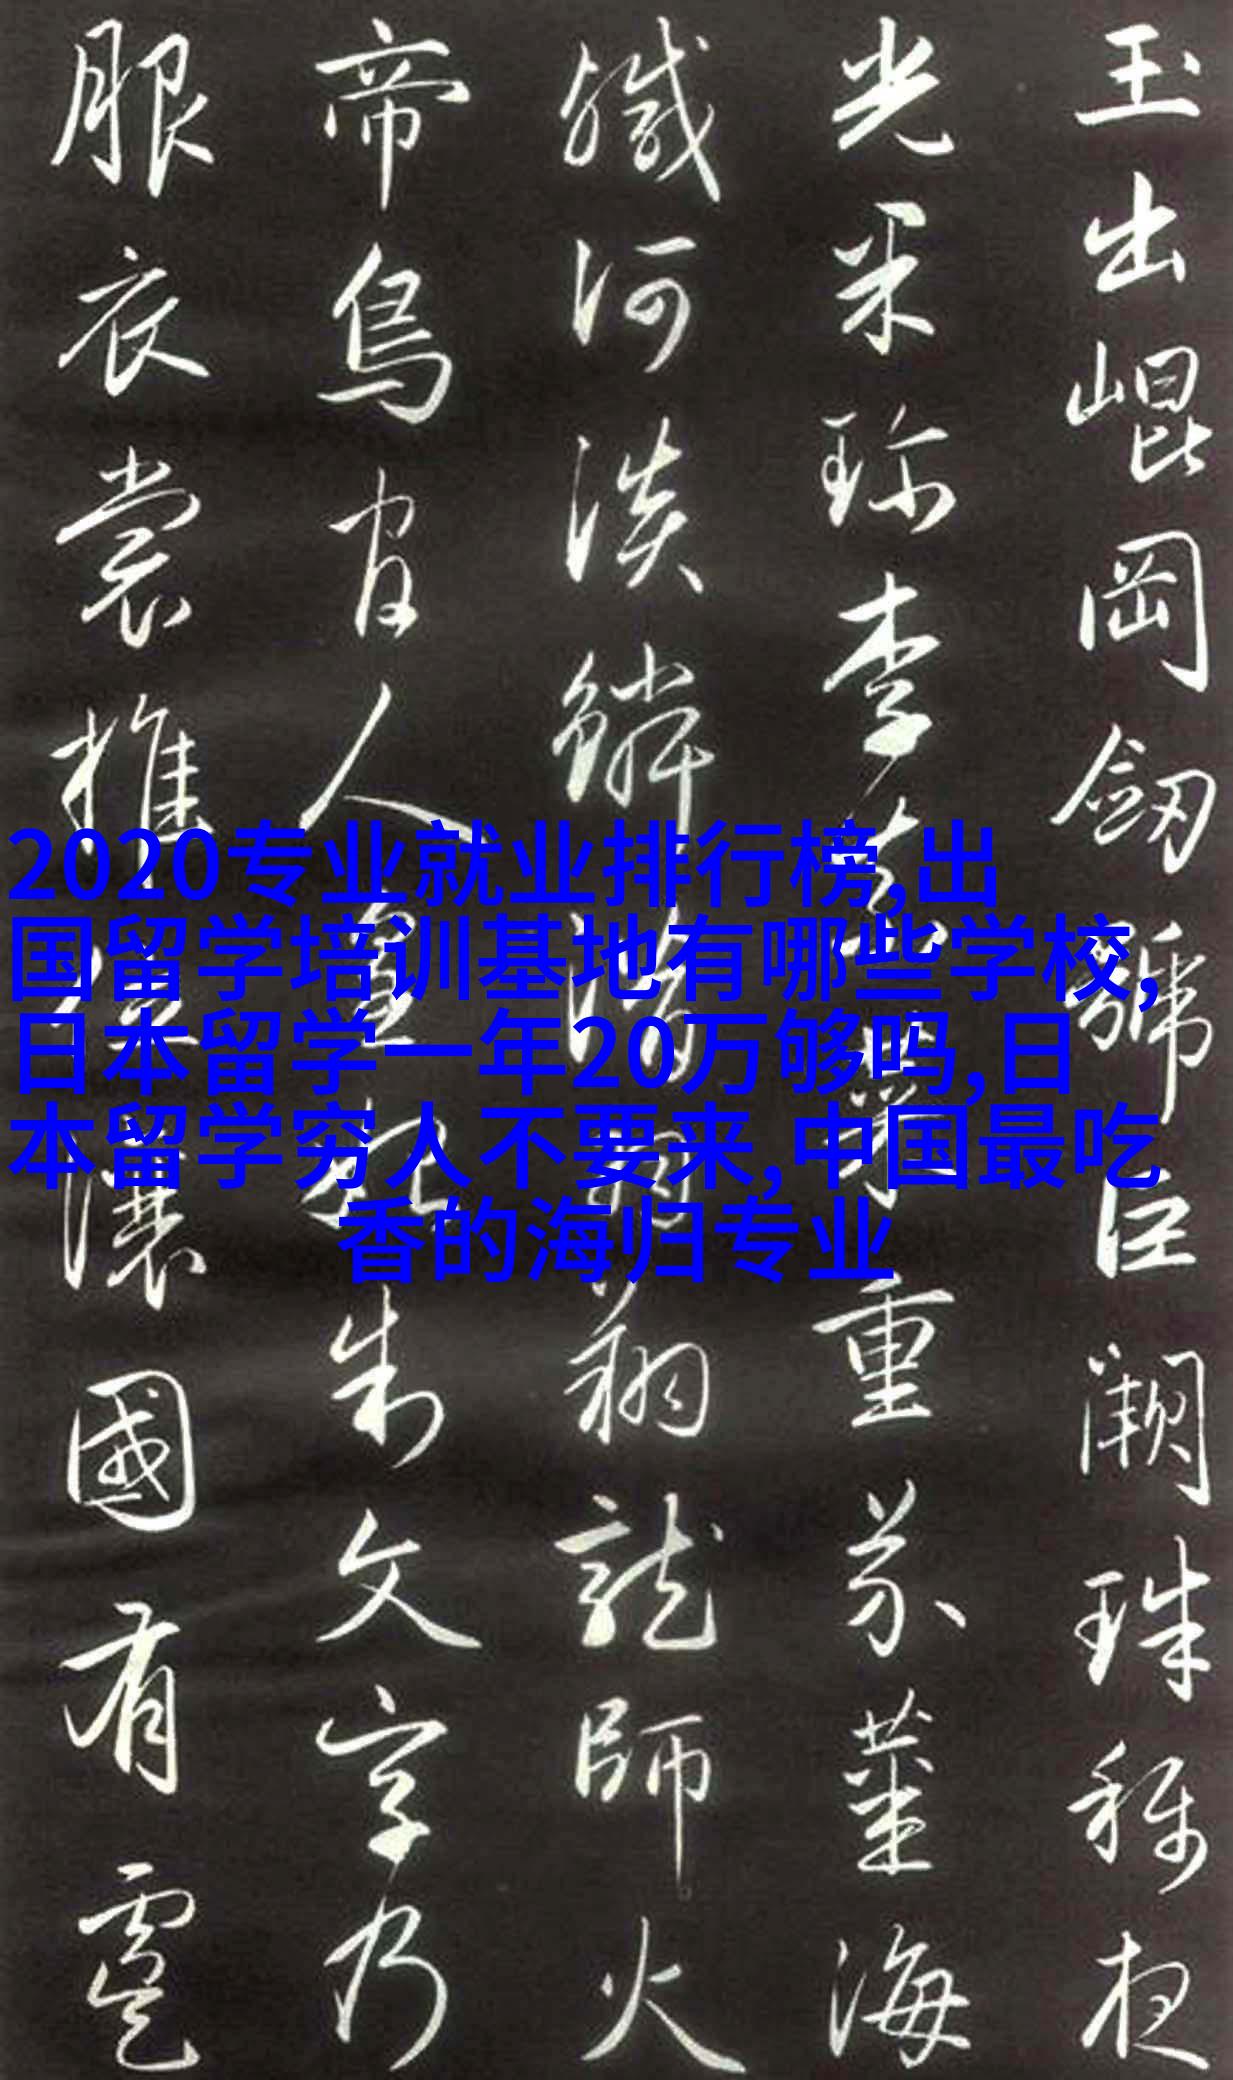 玉出崐岡劒號巨闕珠称夜
光果珍李柰菜重芥薑海
鹹河淡鱗潛羽翔龍師火
帝鳥官人皇始制文字乃
服衣裳推位讓國有虞
2020专业就业排行榜,出
国留学培训基地有哪些学校,
日本留学一年20万够吗,日
本留学穷人不要来,中国最吃
香的海归专业